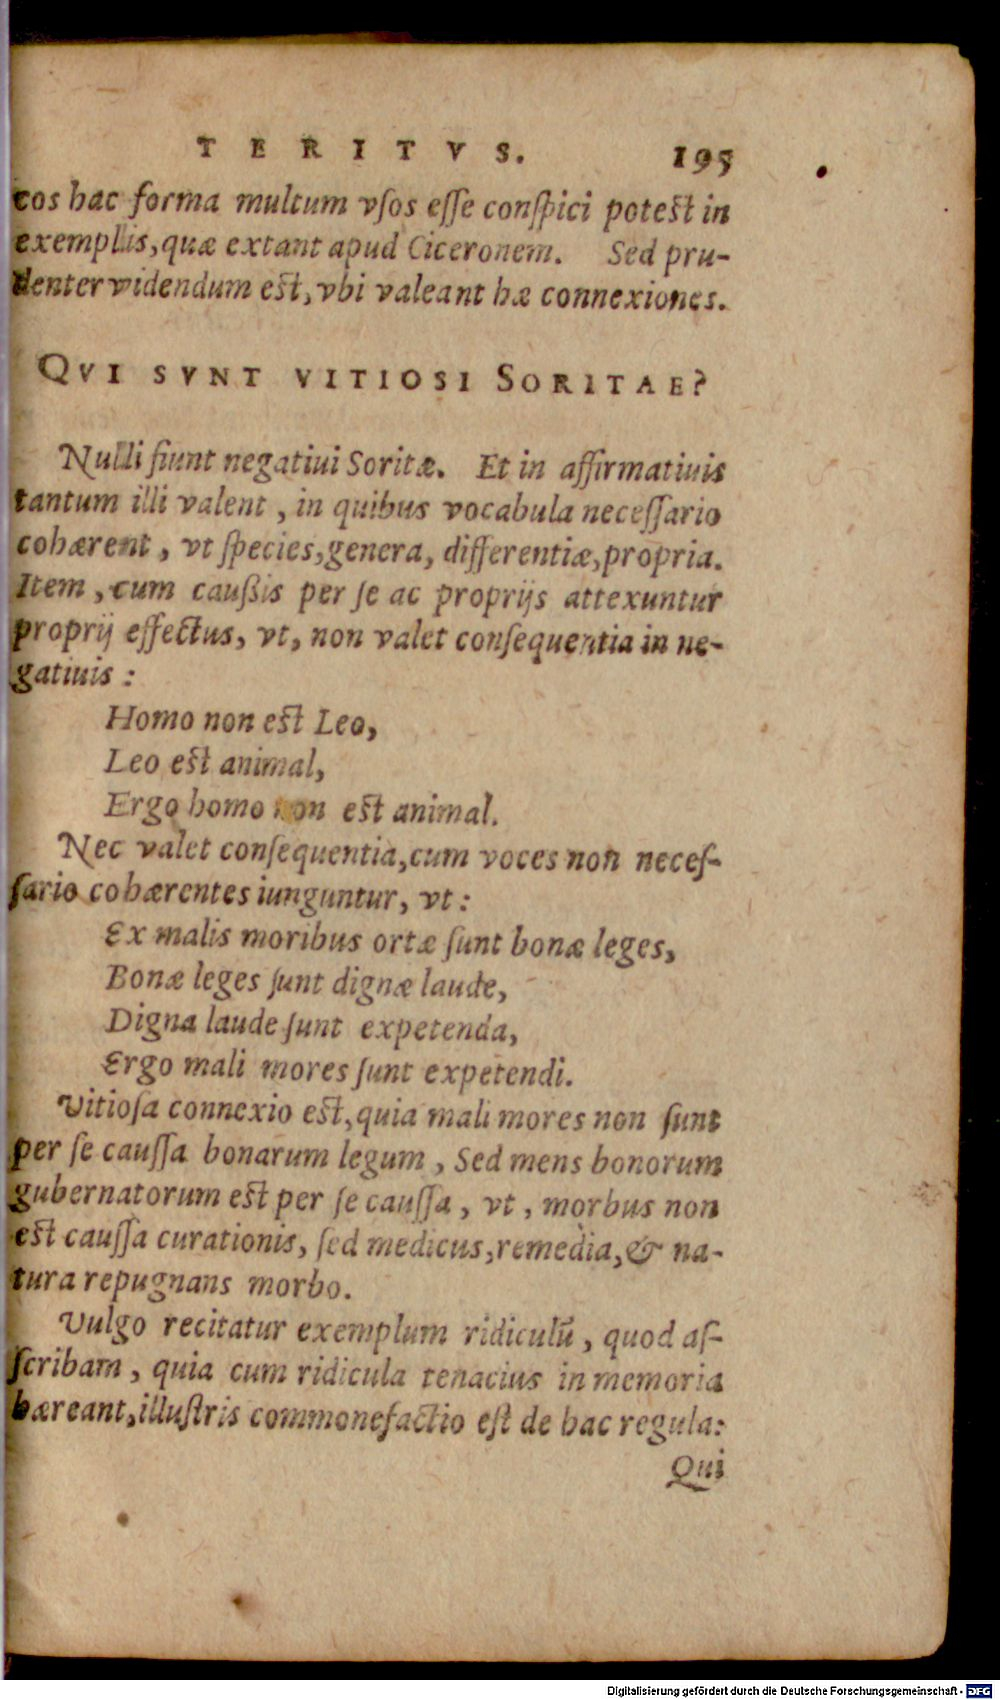 TERITVS. 195
cos hac forma multum vsos esse conspici potest in
exemplis, quæ extant apud Ciceronem. Sed pru-
denter videndum est, vbi valeant hæ connexiones.
QVI SVNT VITIOSI SORITAE?
Nulli fiunt negatiui Soritæ. Et in affirmatiuis
tantum illi valent, in quibus vocabula necessario
cohærent, vt species, genera, differentiæ, propria.
Item, cum caußis per se ac proprijs attexuntur
proprij effectus, vt, non valet consequentia in ne-
gatiuis:
Homo non est Leo,
Leo est animal,
Ergo homo non est animal.
Nec valet consequentia, cum voces non neces-
sario cohærentes iunguntur, vt:
Ex malis moribus ortæ sunt bonæ leges,
Bonæ leges sunt dignæ laude,
Digna laude sunt expetenda,
Ergo mali mores sunt expetendi.
Vitiosa connexio est, quia mali mores non sunt
per se caussa bonarum legum, Sed mens bonorum
gubernatorum est per se caussa, vt, morbus non
est caussa curationis, sed medicus, remedia, & na-
tura repugnans morbo.
Vulgo recitatur exemplum ridiculũ, quod as-
scribam, quia cum ridicula tenacius in memoria
hæreant, illustris commonefactio est de hac regula:
Qui
Digitalisierung gefördert durch die Deutsche Forschungsgemeinschaft - DFG